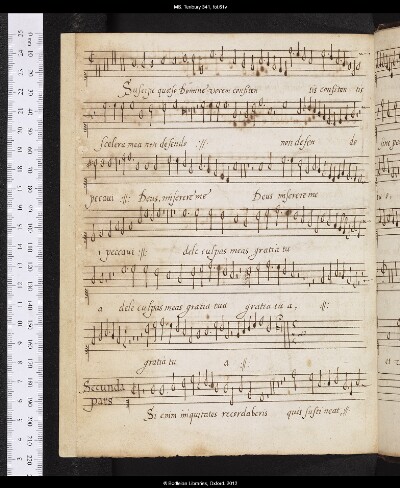 MS. Tenbury 341, fol.51v
Suscipe quęso Domine vocem confiten tis confiten tis
scelera mea non defendo :||: non defen do
peccaui :||: Deus, miserere me Deus miserere me
i peccaui :||: dele culpas meas gratia tu
a dele culpas meas gratia tua gratia tu a, :||:
gratia tu a :||:
Secunda
pars
Si enim iniquitates recordaberis quis susti neat, :||:
© Bodleian Libraries, Oxford, 2012